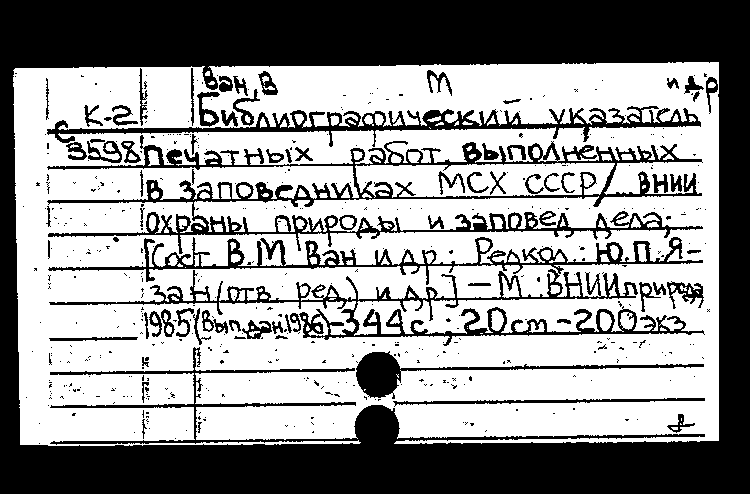 Ван, В М и др
К-2 Библиографический указатель
С 3598 печатных работ, выполненных
в заповедниках МСХ СССР/ ВНИИ
охраны природы и заповед дела;
[Сост В.М Ван и др; Редкол.: Ю.П.Я-
зан (отв. ред.) и др.] — М.: ВНИИприрода,
1985 (Вып.дан.1986) - 344 с ; 20 cm - 200 экз